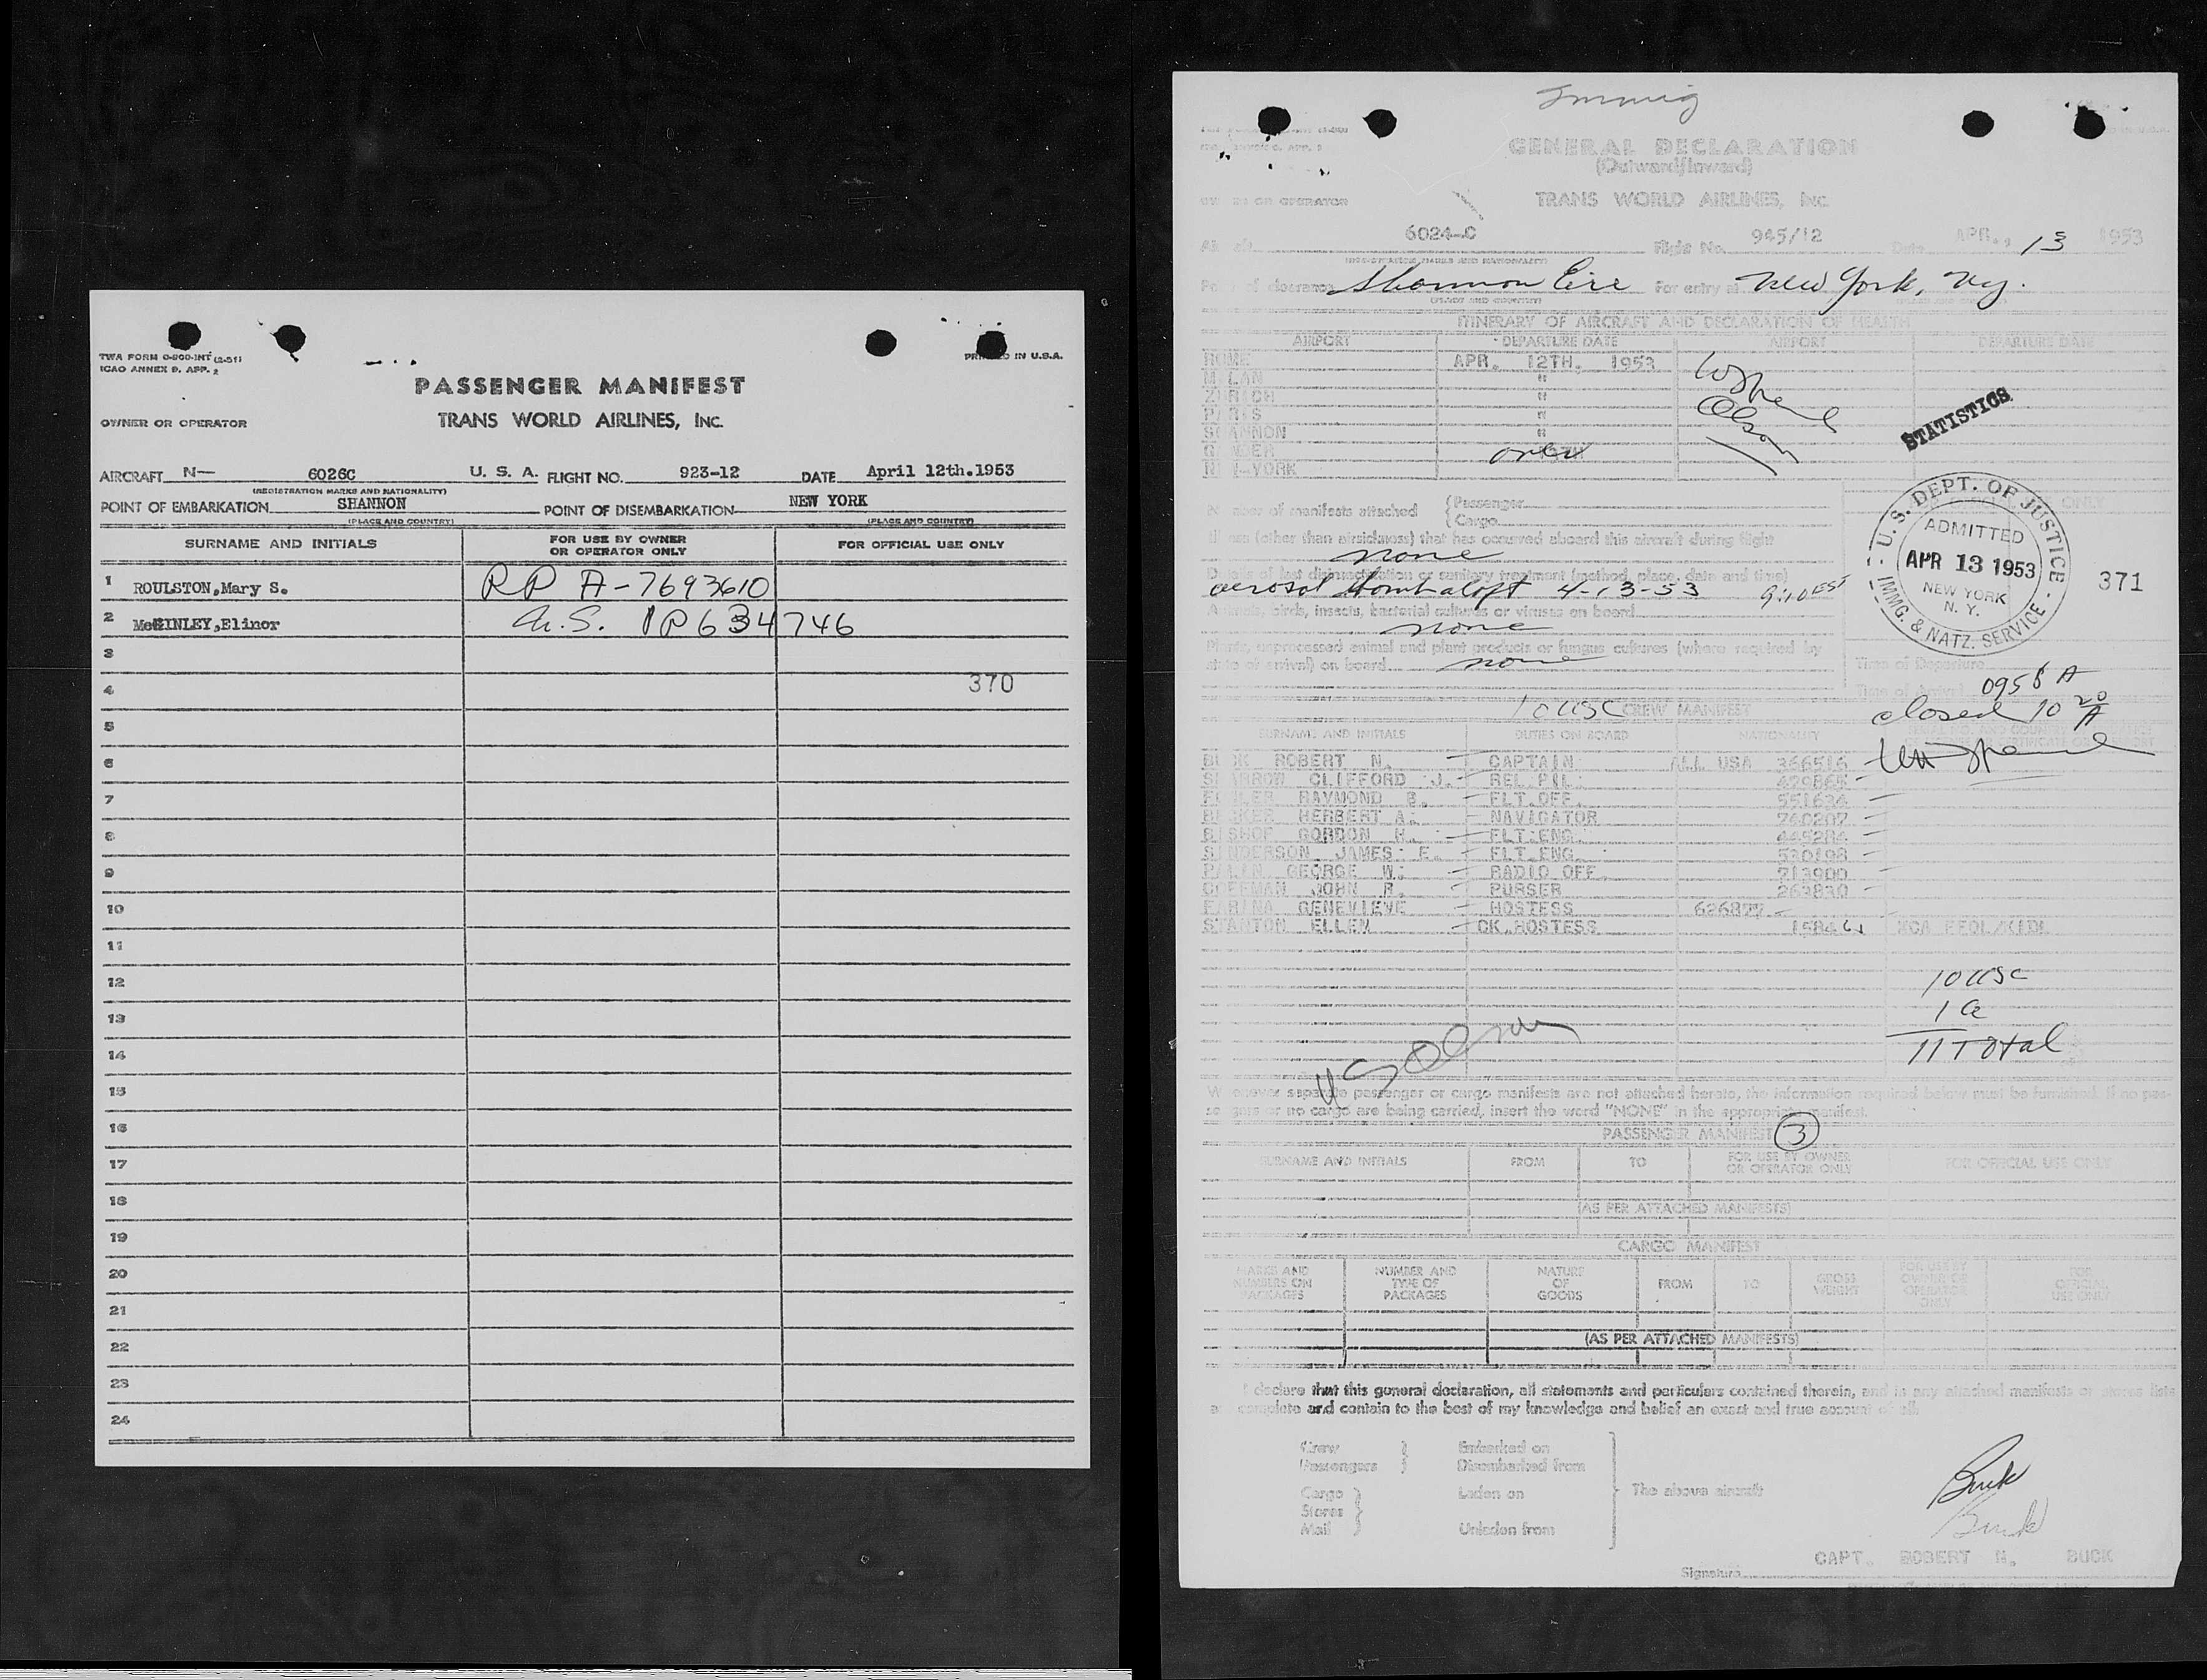 TWA FORM O-800-INT (2-51)
ICAO ANNEX 9, APP. 2
IN U.S.A.
PASSENGER MANIFEST
OWNER OR OPERATOR
TRANS WORLD AIRLINES, Inc.
AIRCRAFT N— 6026C U. S. A. FLIGHT NO. 923-12 DATE April 12th.1953
(REGISTRATION MARKS AND NATIONALITY)
POINT OF EMBARKATION SHANNON POINT OF DISEMBARKATION NEW YORK
(PLACE AND COUNTRY) (PLACE AND COUNTRY)
SURNAME AND INITIALS FOR USE BY OWNER OR OPERATOR ONLY FOR OFFICIAL USE ONLY
1 ROULSTON,Mary S. RP A-7693610
2 McGINLEY,Elinor U.S. PP634746
3
4 370
5
6
7
8
9
10
11
12
13
14
15
16
17
18
19
20
21
22
23
24
Immig
GENERAL DECLARATION
(Outward/Inward)
OR OPERATOR TRANS WORLD AIRLINES, Inc.
6024-C Flight No. 945/12 Date APR., 13 1953
(REGISTRATION MARKS AND NATIONALITY)
of clearance Shannon Eire For entry at New York, Ny.
(PLACE AND COUNTRY)
ITINERARY OF AIRCRAFT AND DECLARATION OF HEALTH
AIRPORT DEPARTURE DATE AIRPORT DEPARTURE DATE
ROME APR. 12TH. 1953
MILAN "
ZURICH "
PARIS "
SHANNON "
GANDER over
NEW-YORK
STATISTICS
of manifests attached {Passenger
{Cargo
(other than airsickness) that has occurred aboard this aircraft during flight
none
Details of last disinsectization or sanitary treatment (method, place, date and time)
aerosol bomb aloft 4-13-53 9:10 EST
Animals, birds, insects, bacterial cultures or viruses on board
none
Plants, unprocessed animal and plant products or fungus cultures (where required by
state of arrival) on board none
U.S. DEPT. OF JUSTICE
ADMITTED
APR 13 1953
NEW YORK
N. Y.
IMMG. & NATZ. SERVICE
371
Time of Departure
Time of Arrival 0958 A
closed 10 20 A
10 USC CREW MANIFEST
SURNAME AND INITIALS DUTIES ON BOARD NATIONALITY
BUCK ROBERT N. CAPTAIN ALL USA 366516
CLIFFORD J. REL.PIL. 429865
RAYMOND E. FLT.OFF. 551634
HERBERT A. NAVIGATOR 740207
BISHOP GORDON H. FLT.ENG. 445284
SANDERSON JAMES E. FLT.ENG. 530198
GEORGE W. RADIO OFF. 713900
JOHN R. PURSER 263830
FARINA GENEVIEVE HOSTESS 626877
STANTON ELLEN CK.HOSTESS
10 USC
1 a
11 Total
Whenever separate passenger or cargo manifests are not attached hereto, the information required below must be furnished. If no pas-
sengers or no cargo are being carried, insert the word "NONE" in the appropriate manifest.
PASSENGER MANIFEST 3
SURNAME AND INITIALS FROM TO FOR USE BY OWNER OR OPERATOR ONLY FOR OFFICIAL USE ONLY
(AS PER ATTACHED MANIFESTS)
CARGO MANIFEST
MARKS AND NUMBERS ON PACKAGES NUMBER AND TYPE OF PACKAGES NATURE OF GOODS FROM TO GROSS WEIGHT FOR USE BY OWNER OR OPERATOR ONLY FOR OFFICIAL USE ONLY
(AS PER ATTACHED MANIFESTS)
I declare that this general declaration, all statements and particulars contained therein, and in any attached manifests or stores lists
complete and contain to the best of my knowledge and belief an exact and true account of all
Crew Embarked on
Passengers Disembarked from
Cargo Laden on The above aircraft
Stores
Mail Unladen from
Buck
Buck
CAPT. ROBERT N. BUCK
Signature